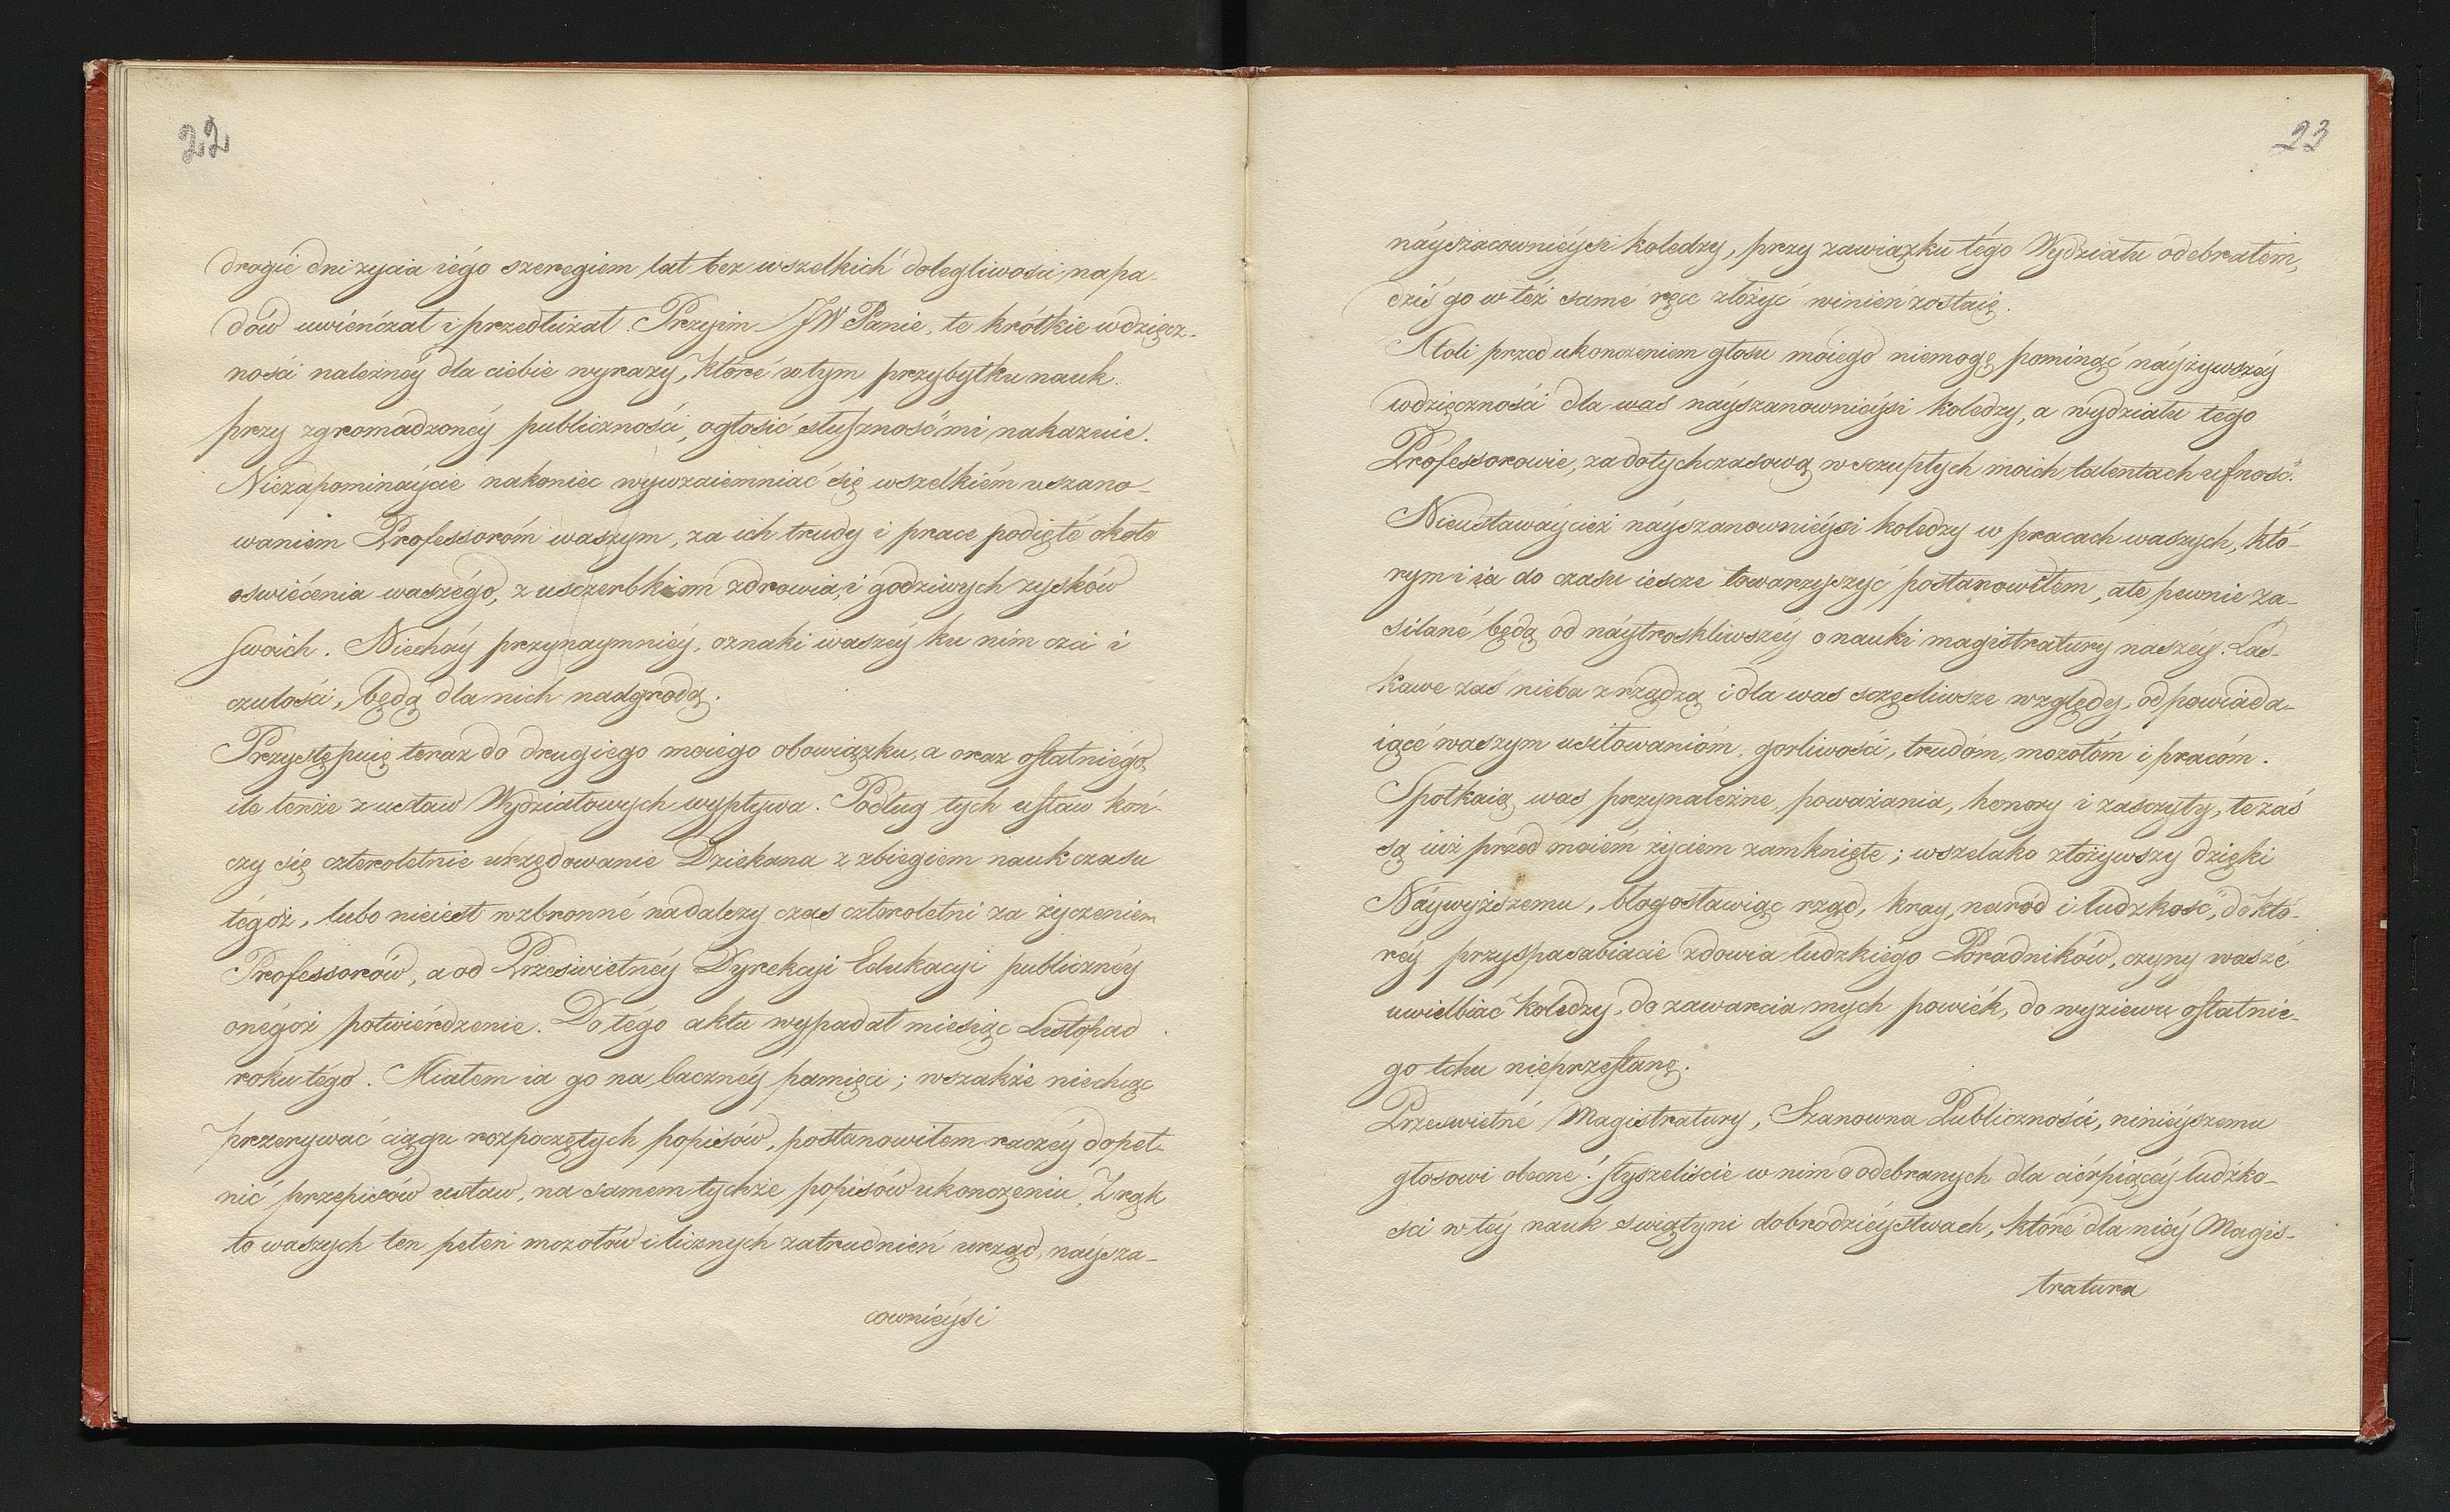 22
drogie dni zycia iégo szeregiem lat bez wszelkich dolegliwości napa-
dów uwieńczał i przedłużał. Przyim JW Panie, te krótkie wdzięcz-
ności należnéy dla ciebie wyrazy, które w tym przybytku nauk
przy zgromadzonéy publiczności, ogłosić słuszność mi nakazuie.
Niezapomináycie nakoniec wywzaiemniać się wszelkiém uszano-
waniem Professoróm waszym, za ich trudy i prace podięte około
oswiécenia waszégo, z usczerbkiem zdrowia, i godziwych zysków
swoich. Niecháy przynaymniéy, oznaki waszéy ku nim czci i
czułości, będą dla nich nadgrodą.
Przystępuię teraz do drugiego moiego obowiązku, a oraz ostatniégo,
ile tenże z ustaw Wydziałowych wypływa. Podług tych ustaw koń-
czy się czteroletnie urzędowanie Dziekana z zbiegiem nauk czasu
tégoż, lubo nieiest wzbronné nadalszy czas czteroletni za życzeniem
Professorów, a od Prześwietnéy Dyrekcyi Edukacyi publicznéy
onégoż potwiérdzenie. Do tégo aktu wypadał miesiąc Listopad
roku tégo. Miałem ia go na baczney pamięci; wszakże niechcąc
przerywać ciągu rozpoczętych popisów, postanowiłem raczéy dopeł-
nić przepisów ustaw, na samem tychże popisów ukonczeniu. Z rąk
to waszych ten pełen mozołów i licznych zatrudnień urząd, naysza-
cownieýsi
23
náyszacownieýsi koledzy, przy zawiązku tégo Wydziału odebrałem,
dziś go w téż samé ręce złożyć winień zostaię.
Atoli przed ukonczeniem głosu moiego niemogę pominąć náyżywszéy
wdzięczności dla was náyszanownieýsi koledzy, a wydziału tégo
Professorowie, za dotychczasową w szczupłych moich talentach ufność.
Nieustawaýcież náyszanowniéysi koledzy w pracach waszych, któ-
rym i ia do czasu iescze towarzyszyć postanowiłem, ale pewnie za-
silané będą od náytroskliwszéy o nauki magistratury naszey. Łas-
kawe zaś nieba zrządzą i dla was sczęsliwsze względy, odpowiada-
iącé waszym usiłowanióm, gorliwości, trudóm, mozołóm i pracóm.
Spotkaią was przynależne poważania, honory i zasczyty, te zaś
są iuż przed moiém życiem zamknięte; wszelako złożywszy dzięki
Náywyższemu, błogosławiąc rząd, kray, naród i ludzkość, do któ-
réy przysposabiacie zdowia ludzkiégo Poradników, czyny waszé
uwielbiać koledzy, do zawarcia mych powiék, do wyziewu ostatnie-
go tchu nieprzestanę.
Przeswietné Magistratury, Szanowna Publiczności, niniéyszemu
głosowi obecne! słyszeliście w nim o odebranych dla ciérpiącéy ludzko-
ści w téy nauk swiątyni dobrodziéystwach, któré dla niéy Magis-
tratura